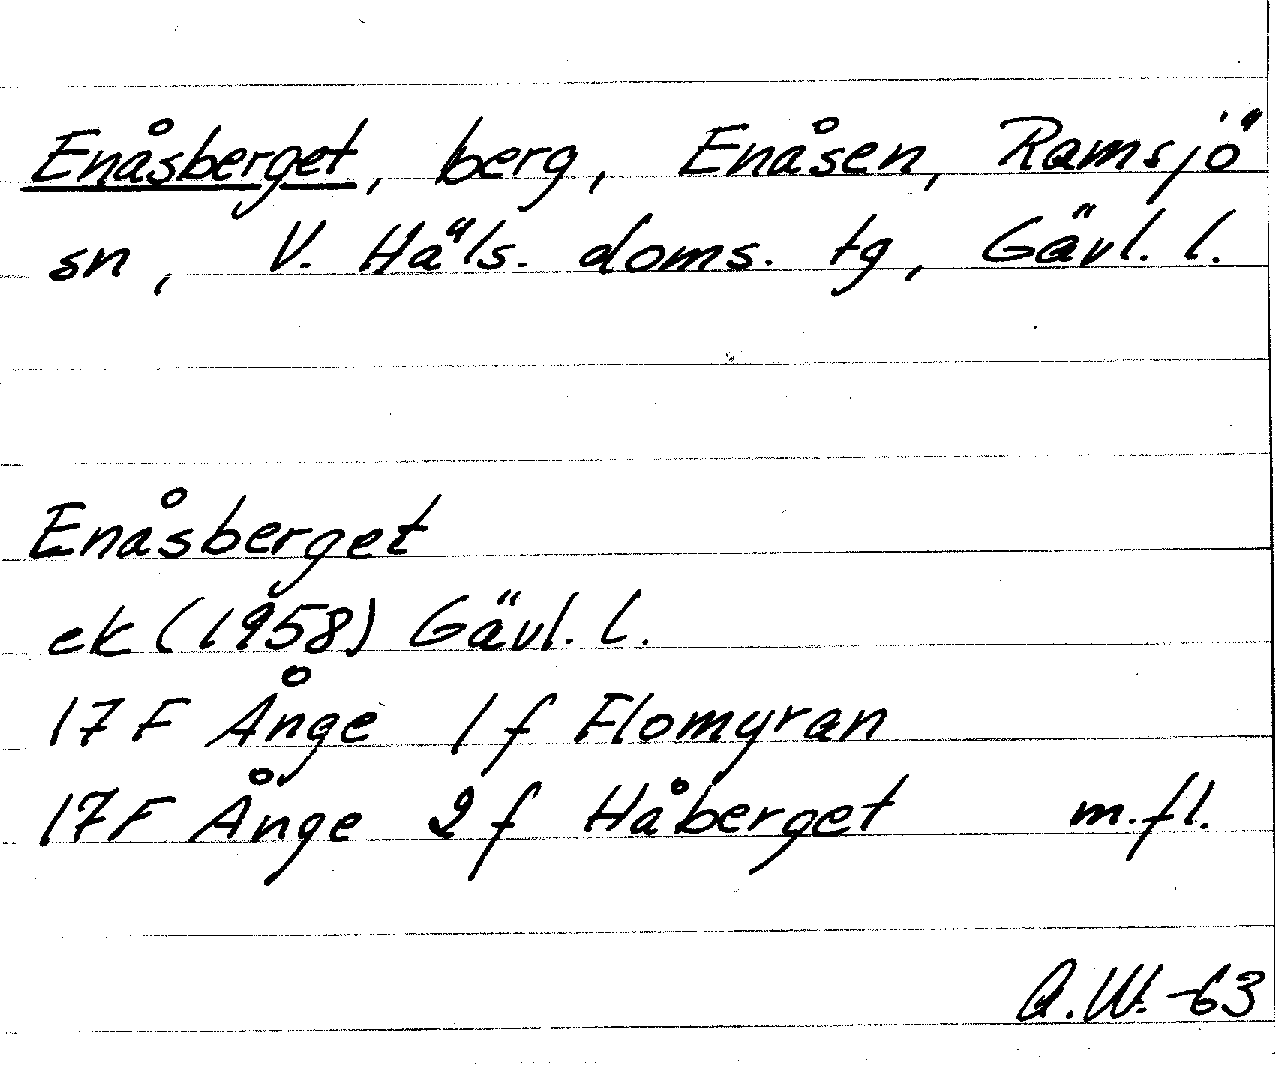 Enåsberget, berg, Enåsen, Ramsjö
sn, V. Häls. doms. tg, Gävl. l.
Enåsberget
ek (1958) Gävl. l.
17F Ånge 1f Flomyran
17F Ånge 2f Håberget m.fl.
A.W. -63